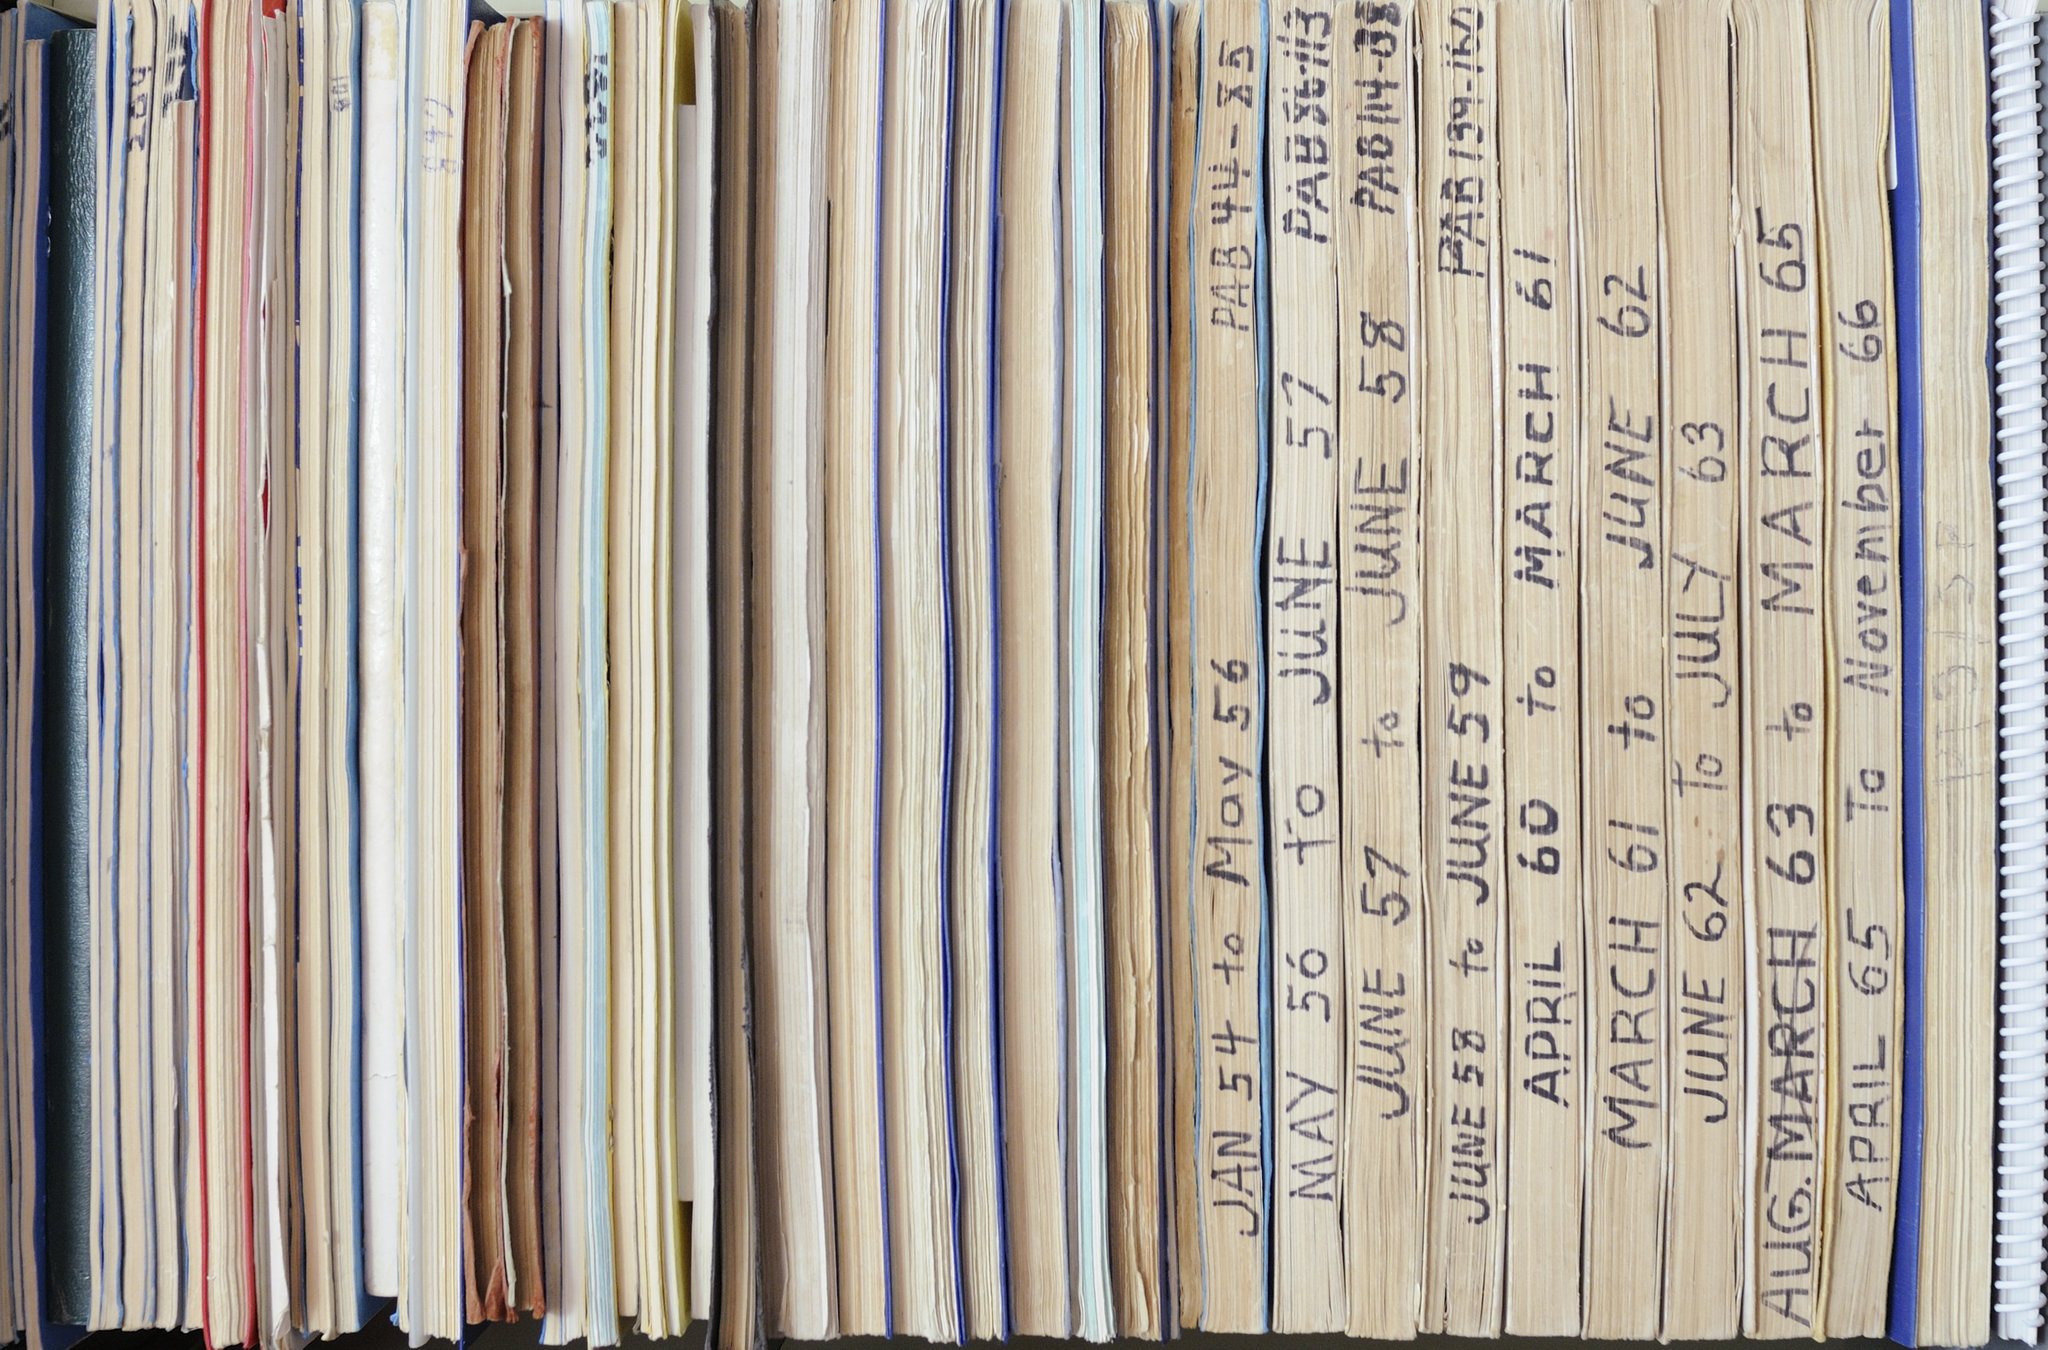 204
801
897
JAN 54 to May 56 PAB 44-85
MAY 56 To JUNE 57 PAB 86-113
JUNE 57 to JUNE 58 PAB 114-138
JUNE 58 to JUNE 59 PAB 139-160
APRIL 60 to MARCH 61
MARCH 61 to JUNE 62
JUNE 62 To JULY 63
AUG. MARCH 63 to MARCH 65
APRIL 65 To November 66